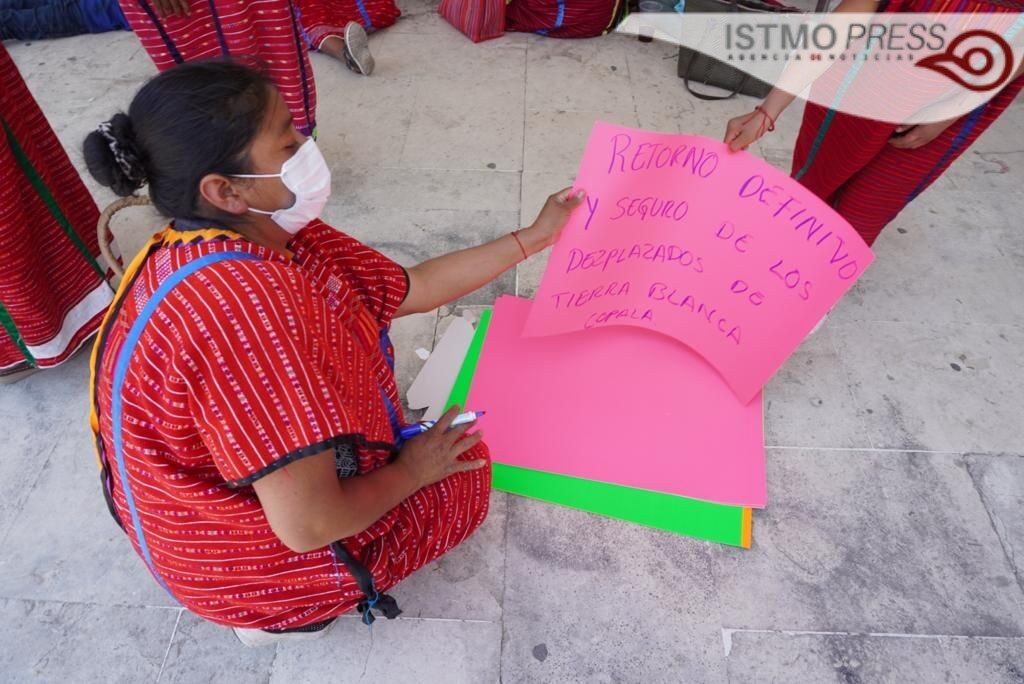 ISTMO PRESS
AGENCIA DE NOTICIAS
RETORNO DEFINIVO
Y SEGURO DE LOS
DEZPLAZADOS DE
TIERRA BLANCA
COPALA